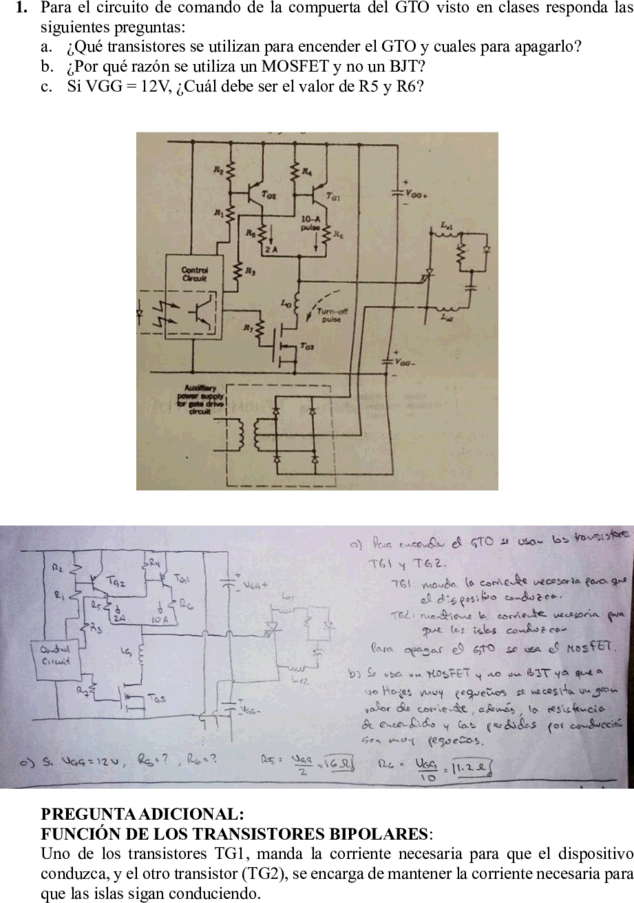 1. Para el circuito de comando de la compuerta del GTO visto en clases responda las
siguientes preguntas:
a. ¿Qué transistores se utilizan para encender el GTO y cuales para apagarlo?
b. ¿Por qué razón se utiliza un MOSFET y no un BJT?
c. Si VGG = 12V, ¿Cuál debe ser el valor de R5 y R6?
R2
R4
TG2
TG1
VGG+
R1
10-A
pulse
R5
R6
2 A
Ls1
Control
Circuit
R3
LG
Turn-off
pulse
Ls2
R7
TG3
VGG-
Auxiliary
power supply
for gate drive
circuit
a) Para encender el GTO se usan los transistores
TG1 y TG2.
TG1: manda la corriente necesaria para que
el dispositivo conduzca.
TG2: mantiene la corriente necesaria para
que las islas conduzcan
Para apagar el GTO se usa el MOSFET.
b) Se usa un MOSFET y no un BJT ya que a
voltajes muy pequeños se necesita un gran
valor de corriente, además, la resistencia
de encendido y las perdidas por conducción
son muy pequeñas.
R2
R4
TG2
TG1
VGG+
R1
R5
2A
10A
R6
R3
LG
Control
Circuit
R7
TG3
VGG-
c) Si VGG = 12V, R5=? , R6=? R5 = VGG/2 = 6Ω R6 = VGG/10 = 1.2Ω
PREGUNTA ADICIONAL:
FUNCIÓN DE LOS TRANSISTORES BIPOLARES:
Uno de los transistores TG1, manda la corriente necesaria para que el dispositivo
conduzca, y el otro transistor (TG2), se encarga de mantener la corriente necesaria para
que las islas sigan conduciendo.